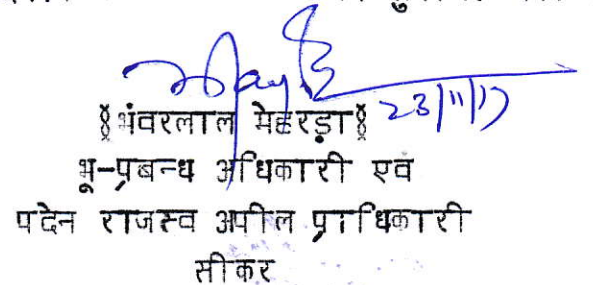 23/11/17
§भंवरलाल मेहरड़ा§
भू-प्रबन्ध अधिकारी एवं
पदेन राजस्व अपील प्राधिकारी
सीकर